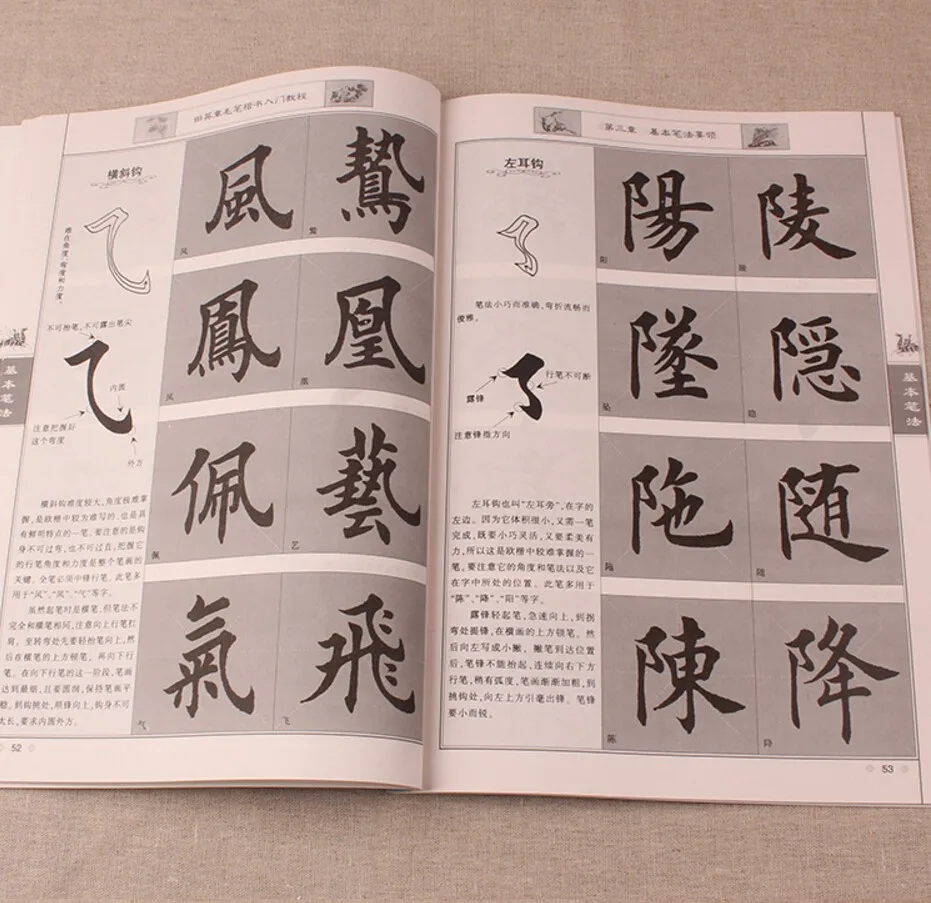 田英章毛笔楷书入门教程
横斜钩
难在角度、弯度和力度。
不可抬笔,不可露出笔尖
内圆
注意把握好
这个弯度
外方
横斜钩难度较大,角度极难掌
握,是欧楷中较为难写的,也是具
有鲜明特点的一笔。要注意的是钩
身不可过弯,也不可过直,把握它
的行笔角度和力度是整个笔画的
关键。全笔必须中锋行笔。此笔多
用于“风”、“凤”、“气”等字。
虽然起笔时是横笔,但笔法不
完全和横笔相同,注意向上行笔扛
肩。至转弯处先要轻抬笔向上,然
后在横笔的上方顿笔。再向下行
笔。在向下行笔的这一阶段,笔画
达到最细,且要圆润,保持笔画平
稳。到钩挑处,顺锋向上,钩身不可
太长,要求内圆外方。
風 鷙
风
鳳 凰
凤 凰
佩 藝
佩 艺
氣 飛
气 飞
52
基本笔法
第三章 基本笔法要领
左耳钩
笔法小巧而准确,弯折流畅而
俊雅。
行笔不可断
露锋
注意锋指方向
左耳钩也叫“左耳旁”,在字的
左边。因为它体积很小,又需一笔
完成,既要小巧灵活,又要柔美有
力,所以这是欧楷中较难掌握的一
笔,要注意它的角度和笔法以及它
在字中所处的位置。此笔多用于
“陈”、“降”、“阳”等字。
露锋轻起笔,急速向上,到拐
弯处提锋,在横画的上方顿笔。然
后向左写成小撇、撇笔到达位置
后,笔锋不能抬起,连续向右下方
行笔,稍有弧度,笔画渐渐加粗,到
挑钩处,向左上方引毫出锋。笔锋
要小而锐。
陽 陵
阳 陵
墜 隐
坠 隐
陁 随
随
陳 降
陈 降
53
基本笔法